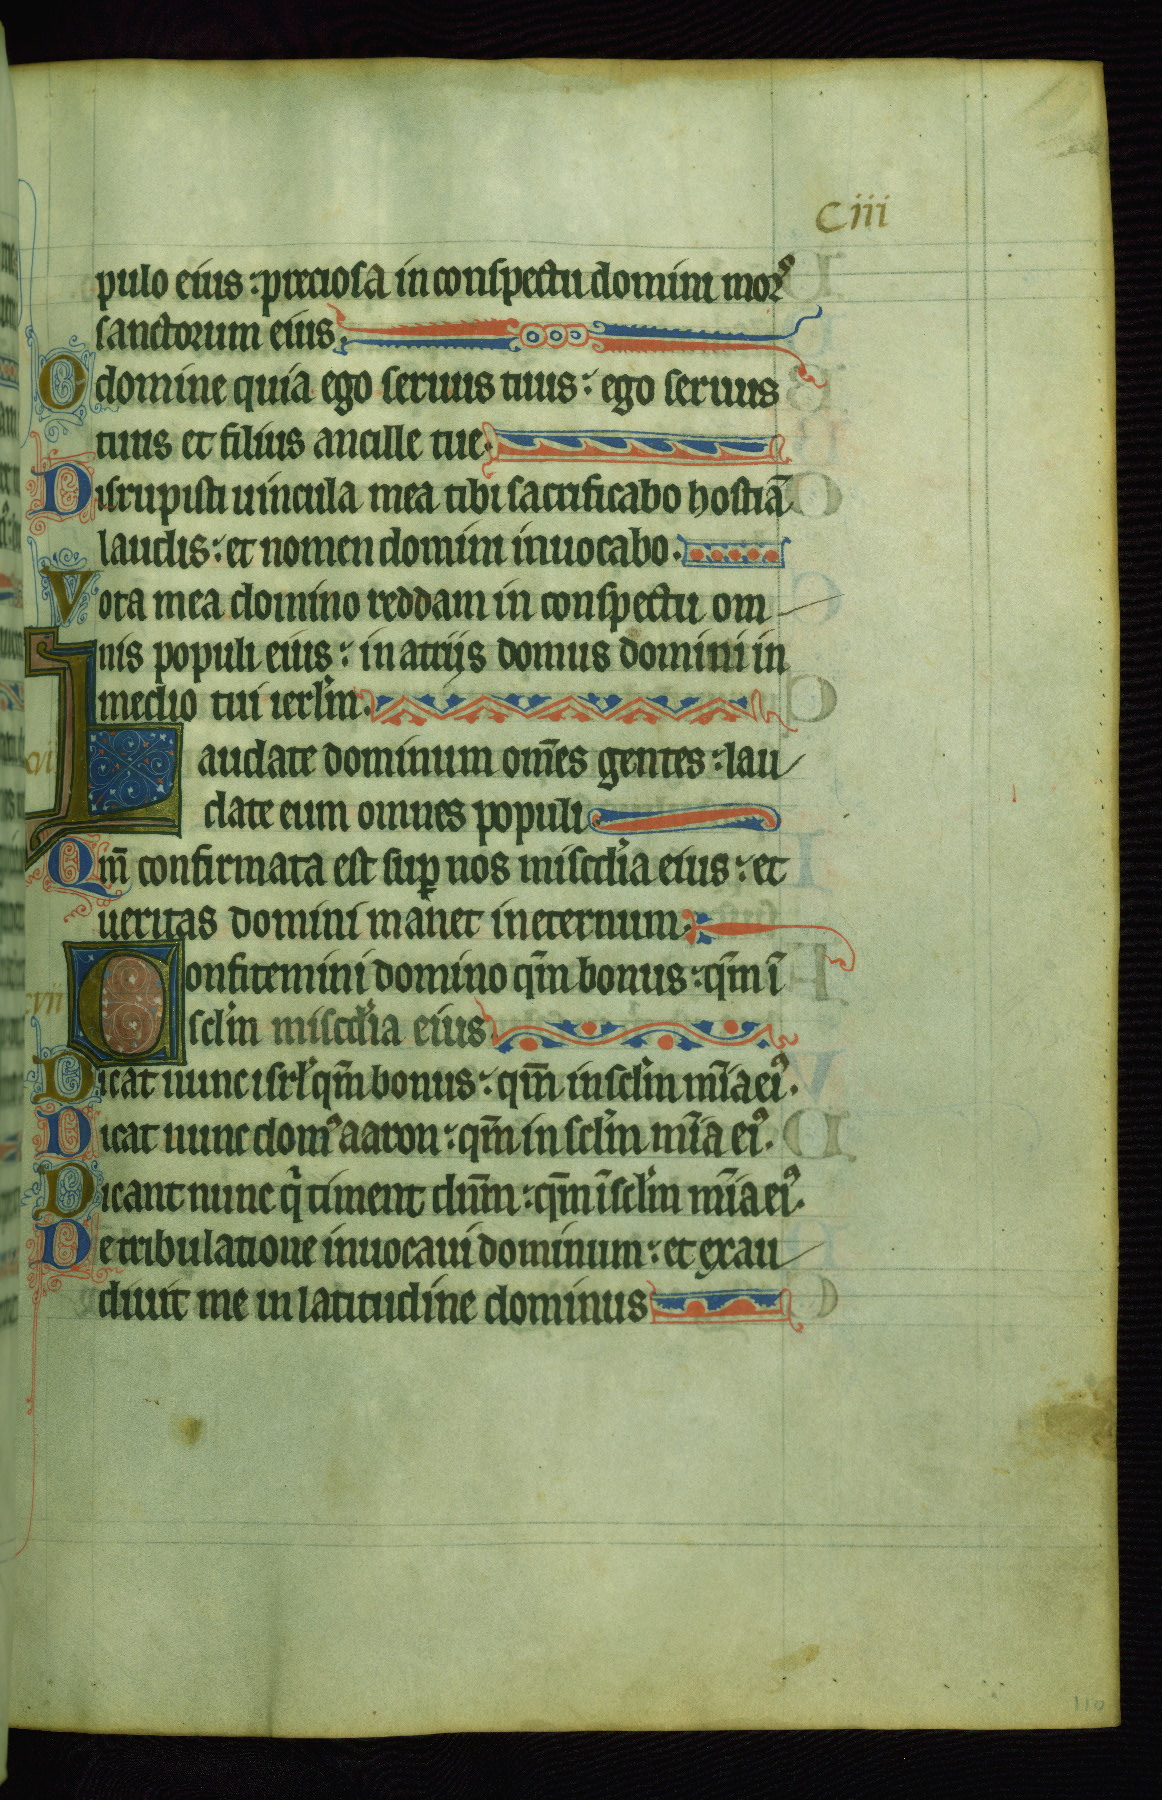 Ciii
pulo eius : preciosa in conspectu domini morˢ
sanctorum eius.
O domine quia ego seruus tuus : ego seruus
tuus et filius ancille tue.
Disrupisti uincula mea tibi sacrificabo hostiā
laudis : et nomen domini inuocabo.
Vota mea domino reddam in conspectu om
nis populi eius : in atriis domus domini in
medio tui ierl̄m.
Laudate dominum om̄es gentes : lau
date eum omnes populi.
Qm̄ confirmata est suꝑ nos misc̄dia eius : et
ueritas domini manet in eternum.
Confitemini domino qm̄ bonus : qm̄ ī
scl̄m misc̄dia eius.
Dicat nunc isrl̄ qm̄ bonus : qm̄ in scl̄m m̄ia eiꝰ.
Dicat nunc domꝰ aaron : qm̄ in scl̄m m̄ia eiꝰ.
Dicant nunc qͥ timent dn̄m : qm̄ ī scl̄m m̄ia eiꝰ.
De tribulatione inuocaui dominum : et exau
diuit me in latitudine dominus
110